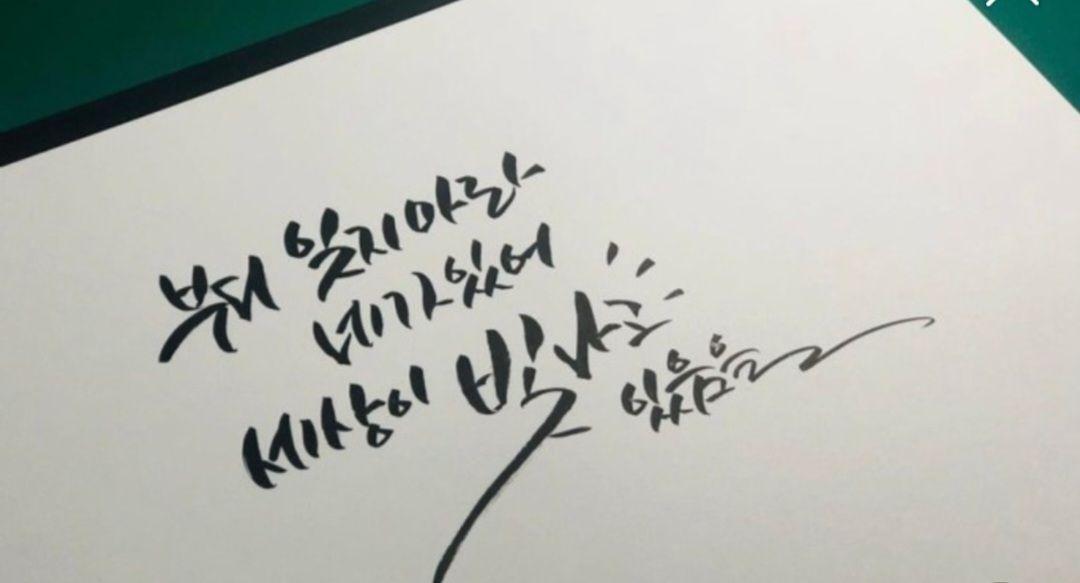 부디 잊지마라
네가 있어
세상이 빛나고
있음을